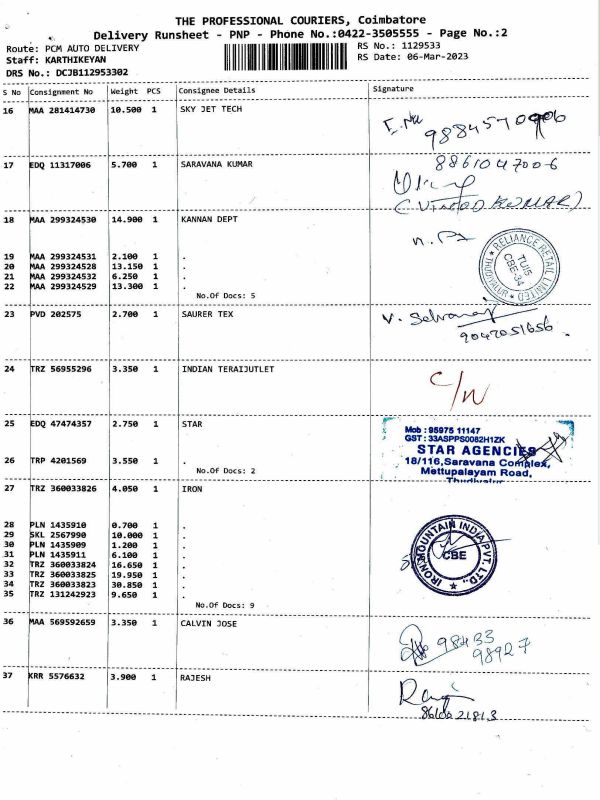 THE PROFESSIONAL COURIERS, Coimbatore
Delivery Runsheet - PNP - Phone No.:0422-3505555 - Page No.:2
Route: PCM AUTO DELIVERY
RS No.: 1129533
Staff: KARTHIKEYAN
RS Date: 06-Mar-2023
DRS No.: DCJB112953302
S No Consignment No Weight PCS Consignee Details Signature
16 MAA 281414730 10.500 1 SKY JET TECH
17 EDQ 11317006 5.700 1 SARAVANA KUMAR
8861047006
(VINOD KUMAR)
18 MAA 299324530 14.900 1 KANNAN DEPT
RELIANCE RETAIL LIMITED
TUI5
CBE-34
THUDIYALUR
19 MAA 299324531 2.100 1 .
20 MAA 299324528 13.150 1 .
21 MAA 299324532 6.250 1 .
22 MAA 299324529 13.300 1 .
No.Of Docs: 5
23 PVD 202575 2.700 1 SAURER TEX
V. Selvaraj
9047051656
24 TRZ 56955296 3.350 1 INDIAN TERAIJUTLET
C/N
25 EDQ 47474357 2.750 1 STAR
Mob : 95975 11147
GST : 33ASPPS0082H1ZK
STAR AGENCIES
18/116,Saravana Complex,
Mettupalayam Road,
26 TRP 4201569 3.550 1 .
No.Of Docs: 2
27 TRZ 360033826 4.050 1 IRON
IRON MOUNTAIN INDIA PVT. LTD.,
CBE
28 PLN 1435910 0.700 1 .
29 SKL 2567990 10.000 1 .
30 PLN 1435909 1.200 1 .
31 PLN 1435911 6.100 1 .
32 TRZ 360033824 16.650 1 .
33 TRZ 360033825 19.950 1 .
34 TRZ 360033823 30.850 1 .
35 TRZ 131242923 9.650 1 .
No.Of Docs: 9
36 MAA 569592659 3.350 1 CALVIN JOSE
98433
98927
37 KRR 5576632 3.900 1 RAJESH